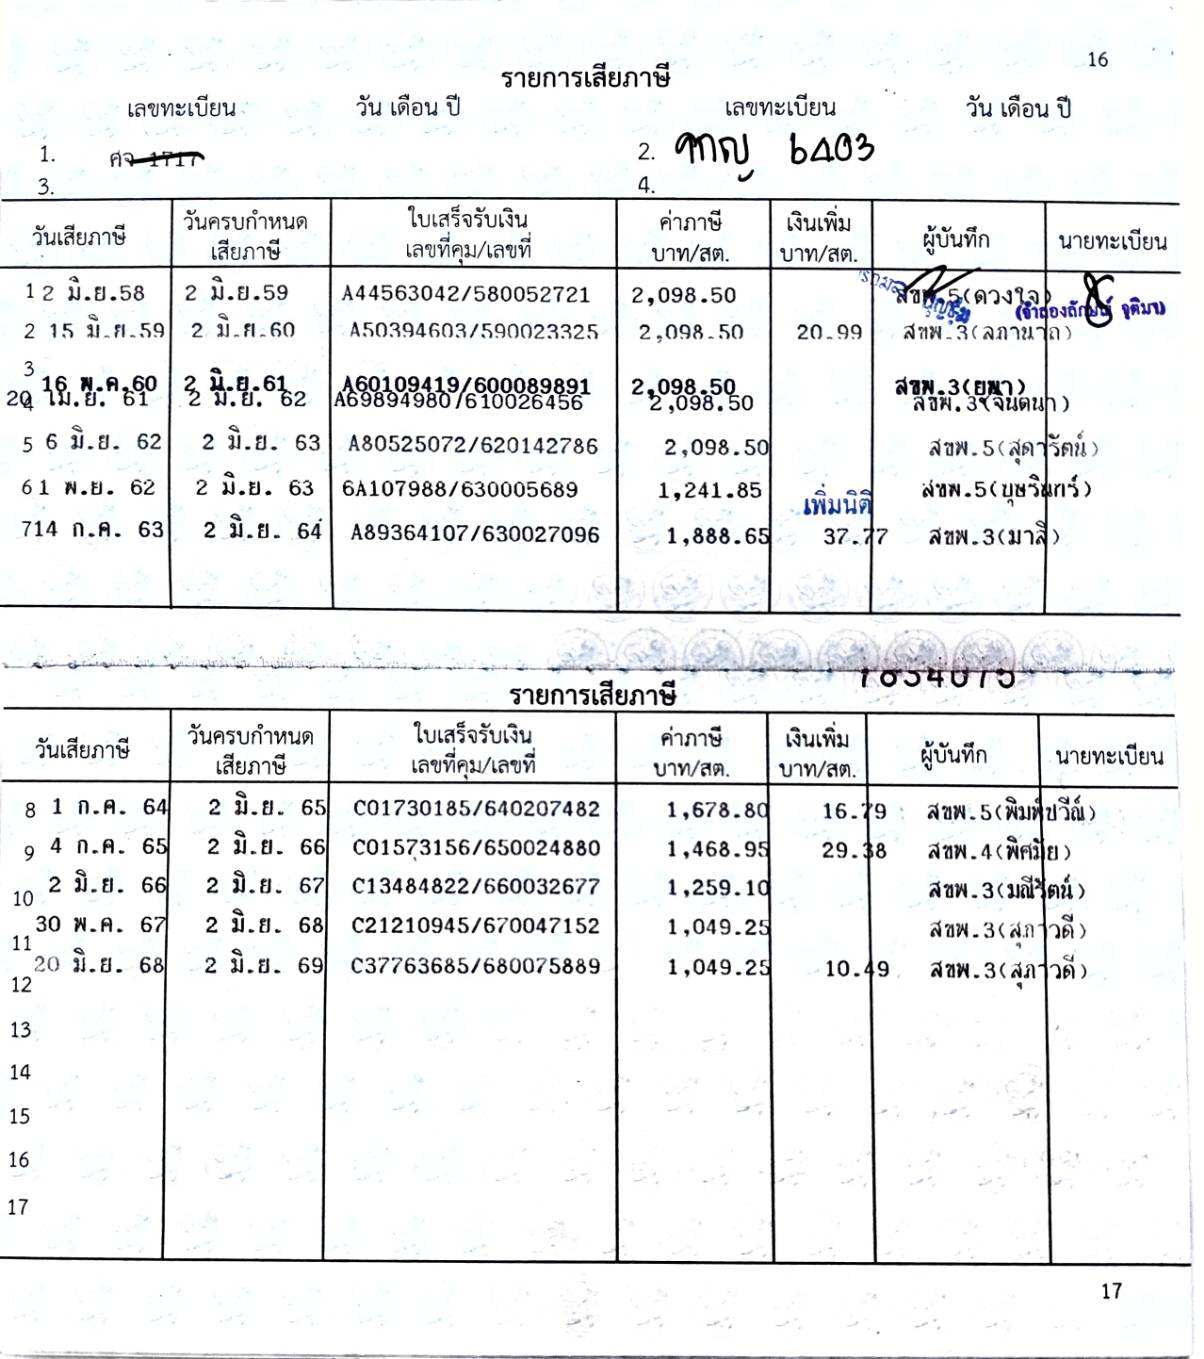 16
รายการเสียภาษี
เลขทะเบียน วัน เดือน ปี เลขทะเบียน วัน เดือน ปี
1. ศจ 1717 2. 6403
3. 4.
วันเสียภาษี วันครบกำหนดเสียภาษี ใบเสร็จรับเงิน เลขที่คุม/เลขที่ ค่าภาษี บาท/สต. เงินเพิ่ม บาท/สต. ผู้บันทึก นายทะเบียน
1 2 มิ.ย.58 2 มิ.ย.59 A44563042/580052721 2,098.50 สขพ.5(ดวงใจ)
2 15 มิ.ย.59 2 มิ.ย.60 A50394603/590023325 2,098.50 20.99 สขพ.3(ลภานาถ)
3 16 พ.ค.60 2 มิ.ย.61 A60109419/600089891 2,098.50 สขพ.3(ยุพา)
4 20 เม.ย. 61 2 มิ.ย. 62 A69894980/610026456 2,098.50 สขพ.3(จินตนา)
5 6 มิ.ย. 62 2 มิ.ย. 63 A80525072/620142786 2,098.50 สขพ.5(สุดารัตน์)
6 1 พ.ย. 62 2 มิ.ย. 63 6A107988/630005689 1,241.85 สขพ.5(บุษรินทร์)
เพิ่มนิติ
7 14 ก.ค. 63 2 มิ.ย. 64 A89364107/630027096 1,888.65 37.77 สขพ.3(มาลี)
รายการเสียภาษี
วันเสียภาษี วันครบกำหนดเสียภาษี ใบเสร็จรับเงิน เลขที่คุม/เลขที่ ค่าภาษี บาท/สต. เงินเพิ่ม บาท/สต. ผู้บันทึก นายทะเบียน
8 1 ก.ค. 64 2 มิ.ย. 65 C01730185/640207482 1,678.80 16.79 สขพ.5(พิมพ์ปวีณ์)
9 4 ก.ค. 65 2 มิ.ย. 66 C01573156/650024880 1,468.95 29.38 สขพ.4(พิศมัย)
10 2 มิ.ย. 66 2 มิ.ย. 67 C13484822/660032677 1,259.10 สขพ.3(มณีรัตน์)
11 30 พ.ค. 67 2 มิ.ย. 68 C21210945/670047152 1,049.25 สขพ.3(สุภาวดี)
12 20 มิ.ย. 68 2 มิ.ย. 69 C37763685/680075889 1,049.25 10.49 สขพ.3(สุภาวดี)
13
14
15
16
17
17